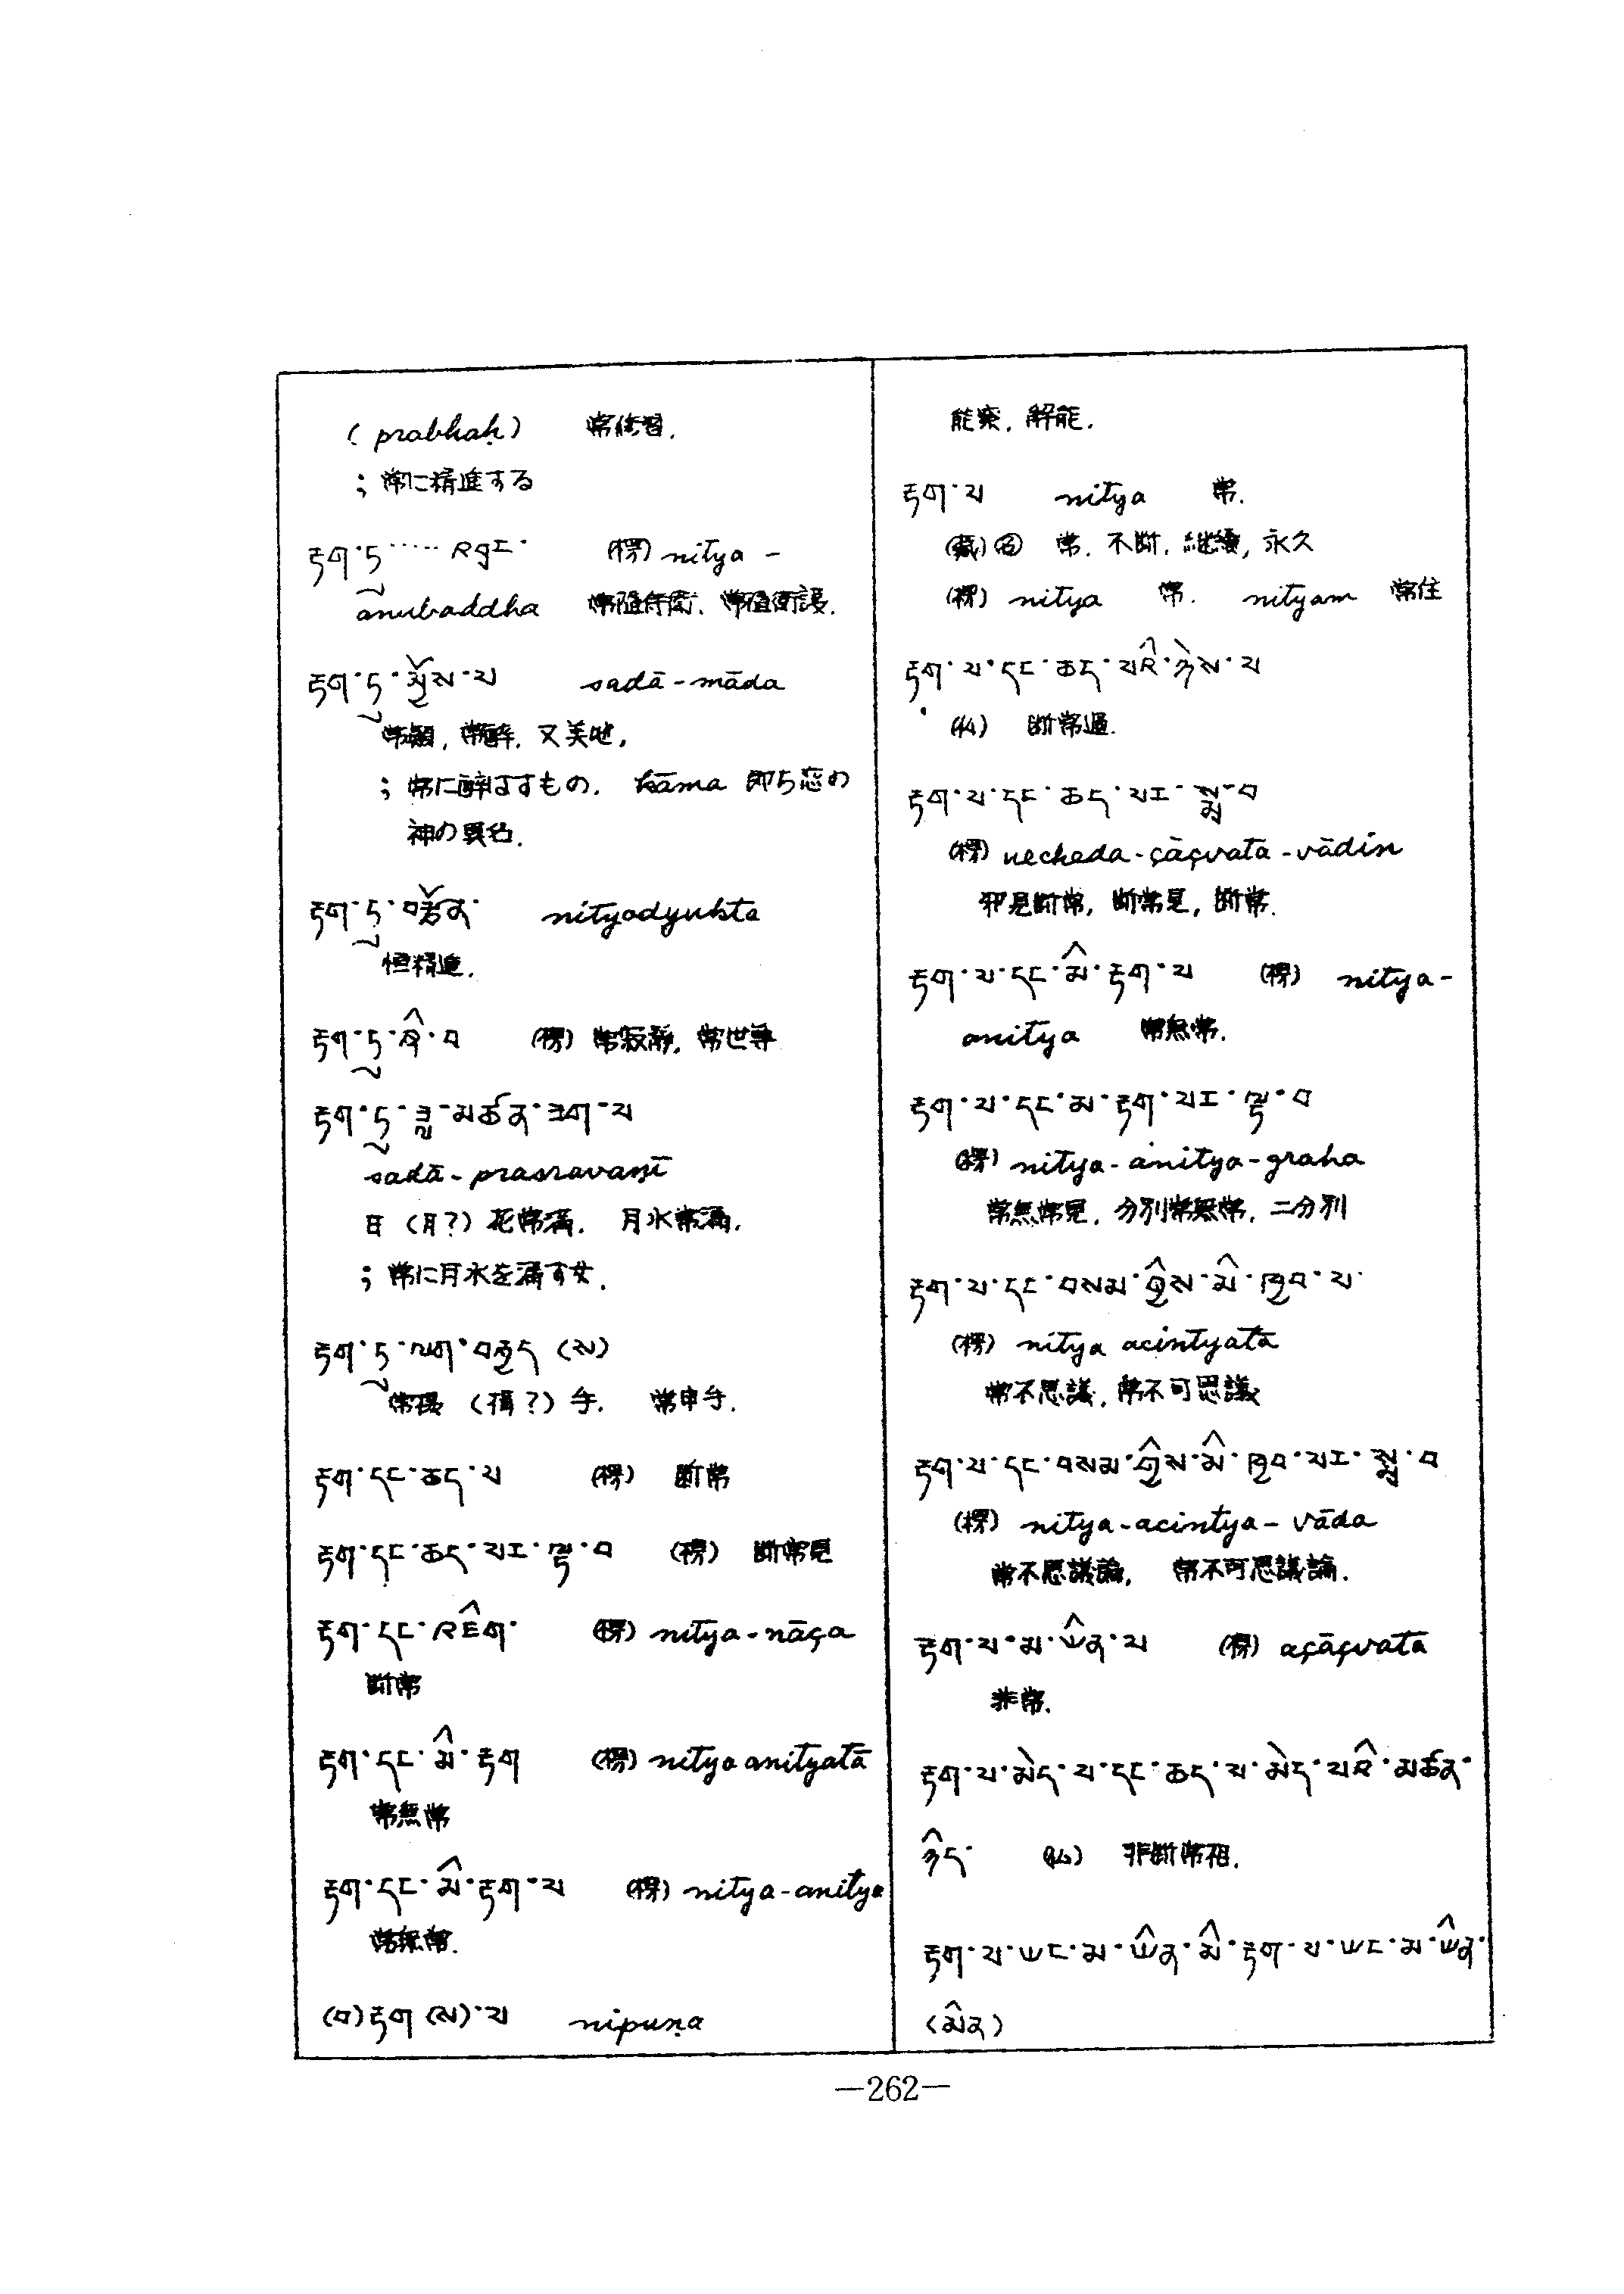 (prabhaḥ) 常修習.
; 常に精進する
རྟག་ཏུ་‥‥‥འགྲང་ (楞) nitya-
anubaddha 常隨侍衛. 常隨衛護.
རྟག་ཏུ་མྱོས་པ sadā-māda
常顛, 常醉. 又美地,
; 常に醉はすもの. kāma 即ち恋の
神の異名.
རྟག་ཏུ་བརྩོན་ nityodyukta
恒精進.
རྟག་ཏུ་ཞི་བ (楞) 常寂静. 常世尊
རྟག་ཏུ་ཟླ་མཚན་ཟག་པ
sadā-prasravaṇī
日 (月?) 花常漏. 月水常漏.
; 常に月水を漏す女.
རྟག་ཏུ་ལག་བརྐྱང (ས)
手. 常申手.
རྟག་དང་ཆད་པ (楞) 断常
རྟག་དང་ཆད་པར་ལྟ་བ (楞) 断常見
རྟག་དང་འཇིག་ (楞) nitya-nāça
断常
རྟག་དང་མི་རྟག (楞) nitya anityatā
常無常
རྟག་དང་མི་རྟག་པ (楞) nitya-anitya
常無常.
(བ)རྟག(ས)་པ nipuṇa
能察. 解能.
རྟག་པ nitya 常.
(藏) 名 常. 不断. 継續, 永久
(楞) nitya 常. nityam 常住
རྟག་པ་དང་ཆད་པའི་ཉེས་པ
断常過.
རྟག་པ་དང་ཆད་པར་སྨྲ་བ
(楞) uccheda-çāçvata-vādin
邪見断常, 断常見, 断常.
རྟག་པ་དང་མི་རྟག་པ (楞) nitya-
anitya 常無常.
རྟག་པ་དང་མ་རྟག་པར་ལྟ་བ
(楞) nitya-anitya-graha
常無常見. 分別常無常. 二分別
རྟག་པ་དང་བསམ་གྱིས་མི་ཁྱབ་པ་
(楞) nitya acintyatā
常不思議. 常不可思議
རྟག་པ་དང་བསམ་གྱིས་མི་ཁྱབ་པར་སྨྲ་བ
(楞) nitya-acintya-vāda
常不思議論, 常不可思議論.
རྟག་པ་མ་ཡིན་པ (楞) açāçvata
非常.
རྟག་པ་མེད་པ་དང་ཆད་པ་མེད་པའི་མཚན་
ཉིད་ 非断常相.
རྟག་པ་ཡང་མ་ཡིན་མི་རྟག་པ་ཡང་མ་ཡིན་
(མིན)
—262—